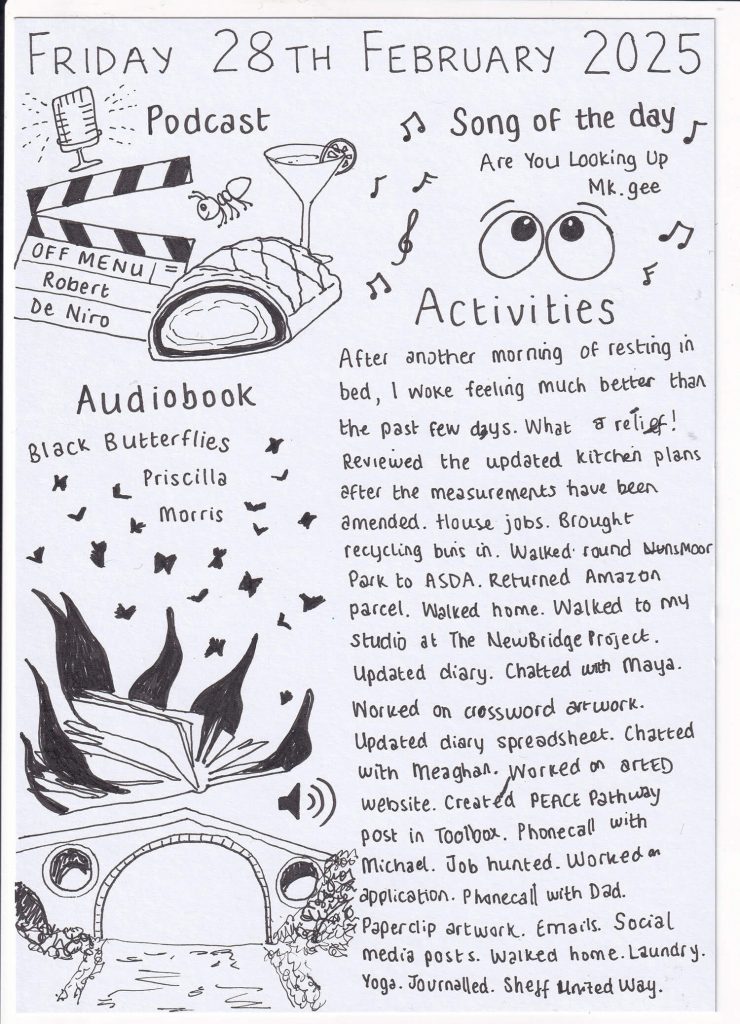 FRIDAY 28TH FEBRUARY 2025
Podcast
OFF MENU
Robert
De Niro
Audiobook
Black Butterflies
Priscilla
Morris
Song of the day
Are You Looking Up
Mk.gee
Activities
After another morning of resting in
bed, I woke feeling much better than
the past few days. What a relief!
Reviewed the updated kitchen plans
after the measurements have been
amended. House jobs. Brought
recycling bins in. Walked round Nunsmoor
Park to ASDA. Returned Amazon
parcel. Walked home. Walked to my
studio at The NewBridge Project.
Updated diary. Chatted with Maya.
Worked on crossword artwork.
Updated diary spreadsheet. Chatted
with Meaghan. Worked on artED
website. Created PEACE Pathway
post in Toolbox. Phonecall with
Michael. Job hunted. Worked on
application. Phonecall with Dad.
Paperclip artwork. Emails. Social
media posts. Walked home. Laundry.
Yoga. Journalled. Sheff United Way.